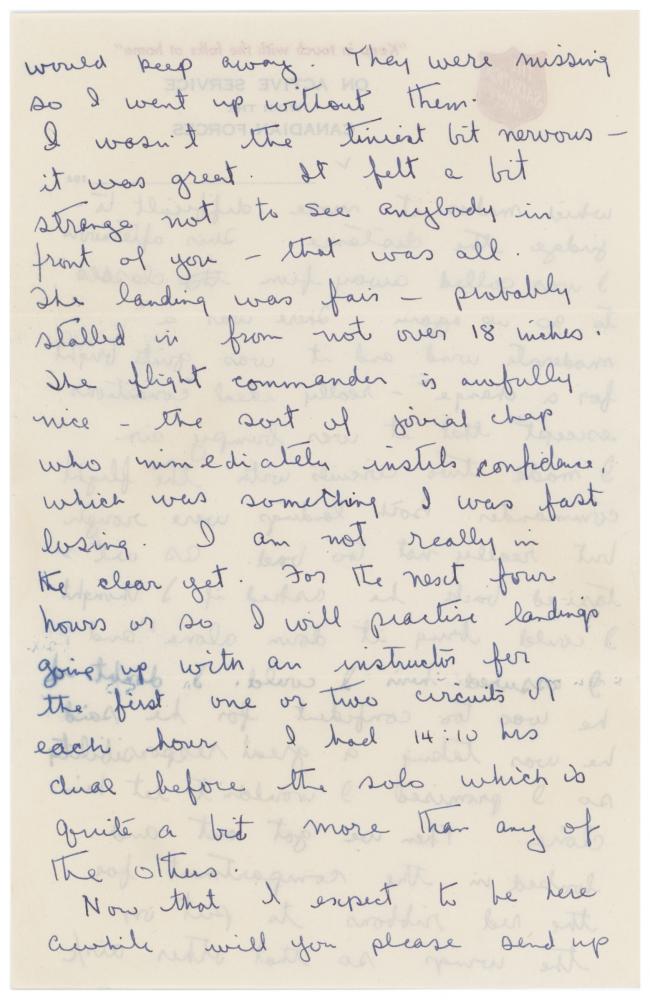 would keep away. They were missing
so I went up without them.
I wasn't the tiniest bit nervous –
it was great. It felt a bit
strange not to see anybody in
front of you – that was all.
The landing was fair – probably
stalled in from not over 18 inches.
The flight commander is awfully
nice – the sort of jovial chap
who immediately instils confidence,
which was something I was fast
losing. I am not really in
the clear yet. For the next four
hours or so I will practise landings
going up with an instructor for
the first one or two circuits of
each hour. I had 14:10 hrs
dual before the solo which is
quite a bit more than any of
the others.
Now that I expect to be here
awhile will you please send up